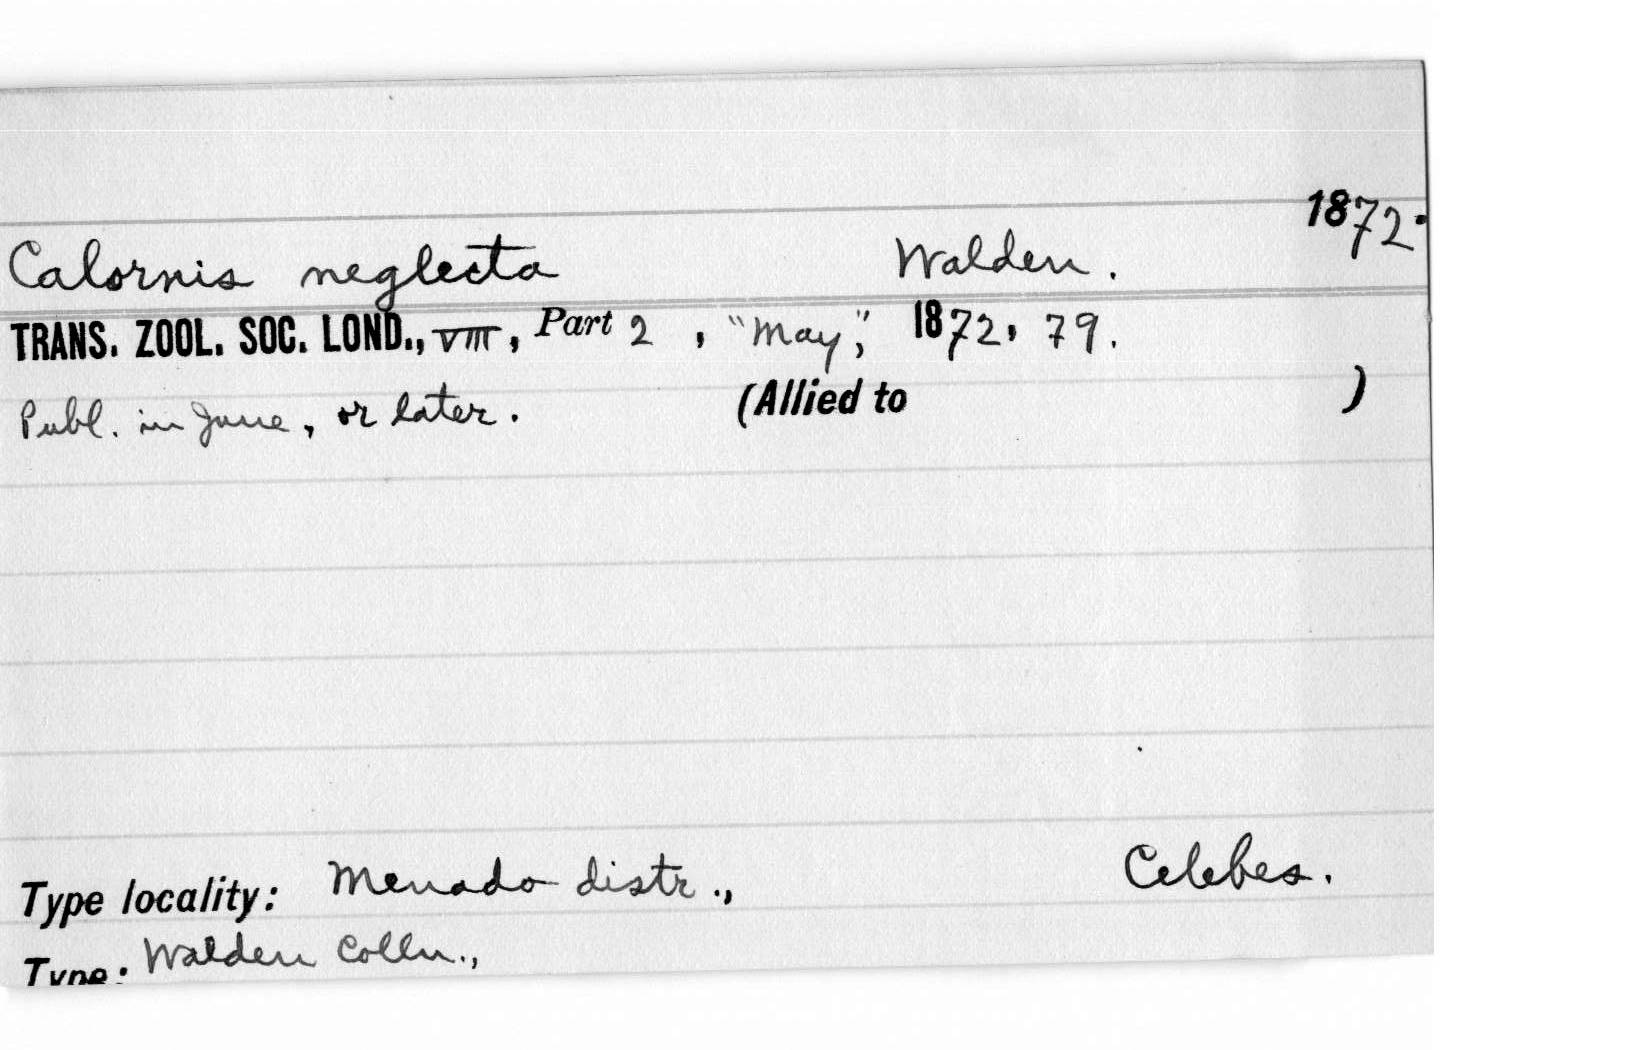 1872.
Calornis neglecta Walden.
TRANS. ZOOL. SOC. LOND., VIII, Part 2 , "May", 1872, 79.
Publ. in June, or later. (Allied to )
Type locality: Menado distr., Celebes.
Type: Walden Colln.,